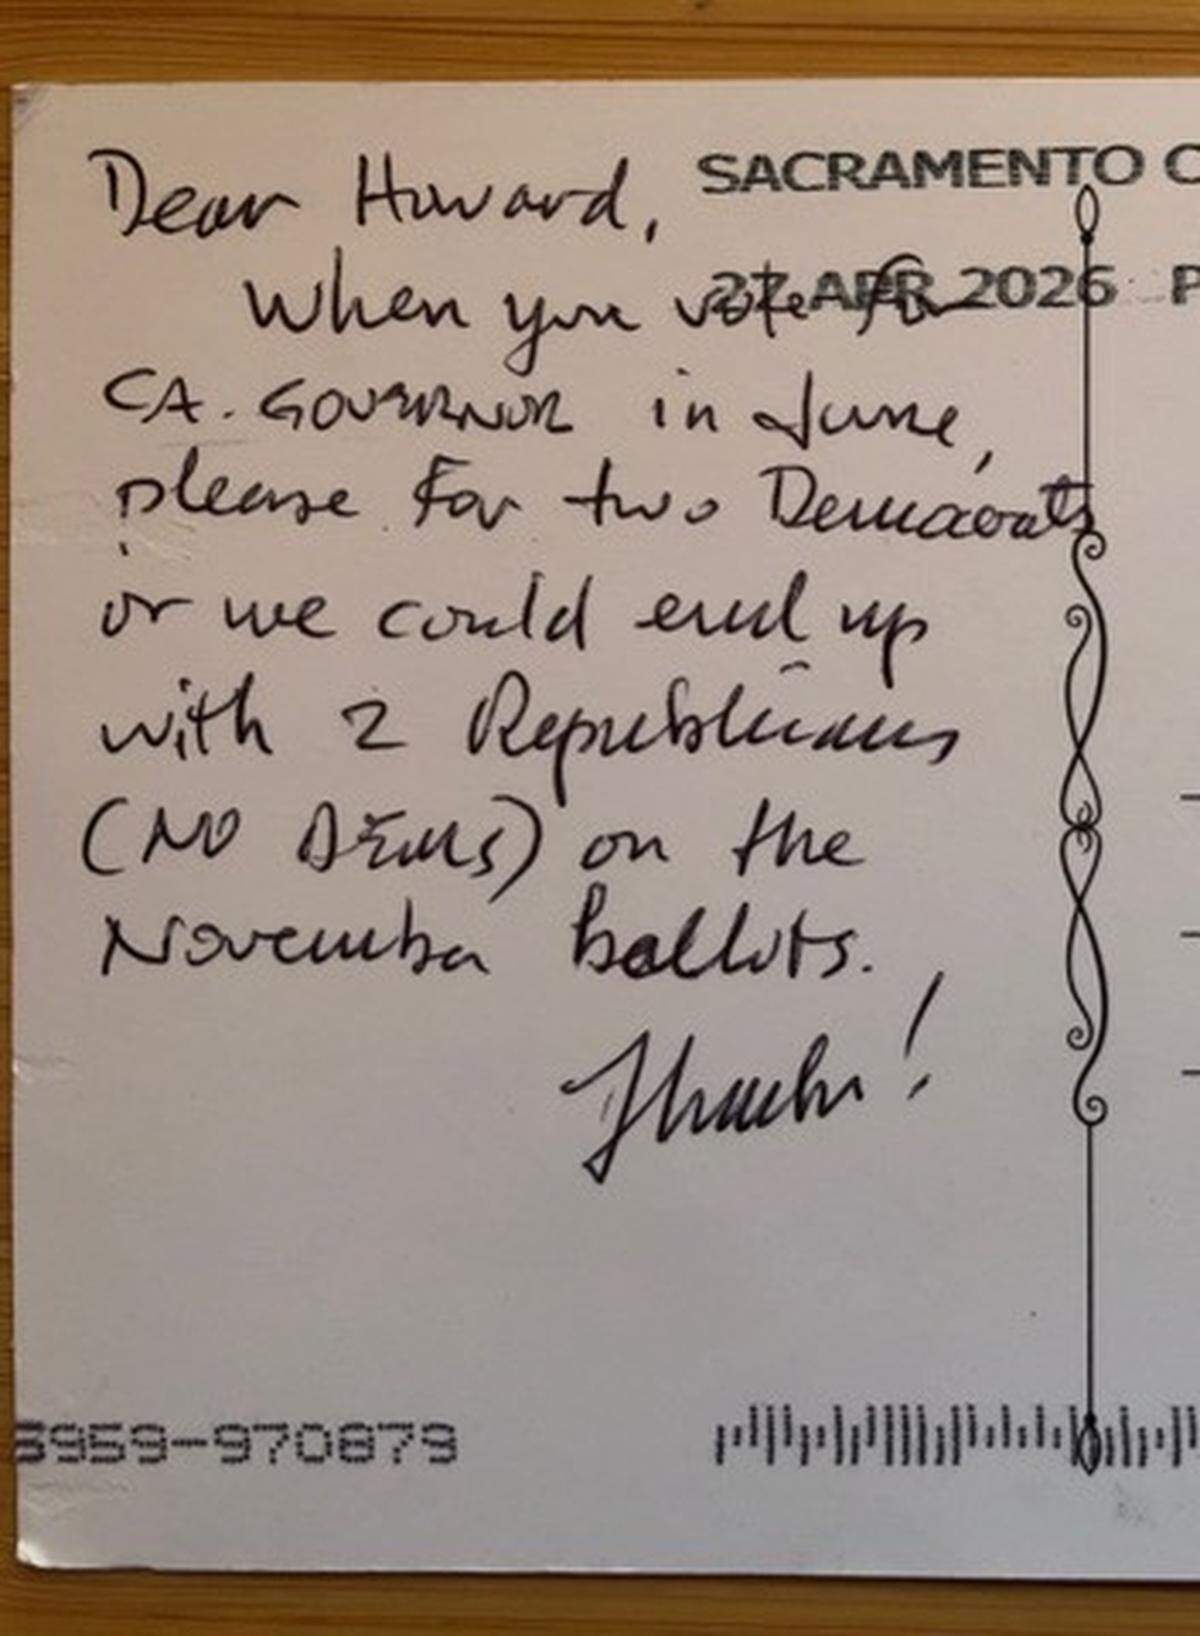 Dear Howard,
SACRAMENTO C
27 APR 2026 P
When you vote for
CA. GOVERNOR in June,
please for two Democrats
or we could end up
with 2 Republicans
(NO DEMS) on the
November ballots.
Thanks!
5959-970879